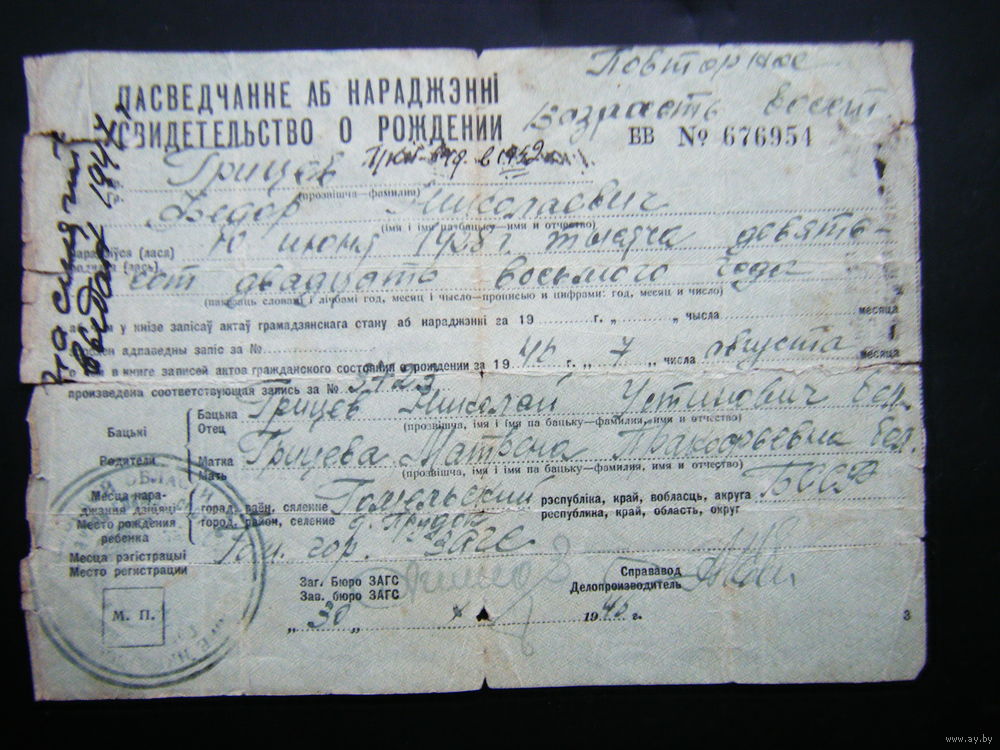 Повторное
ПАСВЕДЧАННЕ АБ НАРАДЖЭННІ
СВИДЕТЕЛЬСТВО О РОЖДЕНИИ
ББ № 676954
Грицев
(прозвішча—фамилия)
Федор Николаевич
(імя і імя па бацьку—имя и отчество)
10 июня 1928 г. тысяча девять-
сот двадцать восьмого года
(паказаць словамі і лічбамі год, месяц і чысло—прописью и цифрами: год, месяц и число)
у кнізе запісаў актаў грамадзянскага стану аб нараджэнні за 19 г. „ „ чысла месяца
адпаведны запіс за №
в книге записей актов гражданского состояния о рождении за 19 46 г. „ 7 „ числа августа месяца
произведена соответствующая запись за №
Бацька
Отец
Грицев Николай Устинович бел.
(прозвішча, імя і імя па бацьку—фамилия, имя и отчество)
Бацькі
Родители
Матка
Мать
Грицева Матрена Прокофьевна бел.
(прозвішча, імя і імя па бацьку—фамилия, имя и отчество)
Месца нараджання дзіцяці
Место рождения ребенка
горад, раён, сяленне
город, район, селение
Гомельский
д. Прудок
рэспубліка, край, вобласць, акруга
республика, край, область, округ
БССР
Месца рэгістрацыі
Место регистрации
Гом. гор. ЗАГС
Заг. Бюро ЗАГС
Зав. бюро ЗАГС
Справавод
Делопроизводитель
М. П.
„ 30 „ 19 46 г.
3
www.ay.by